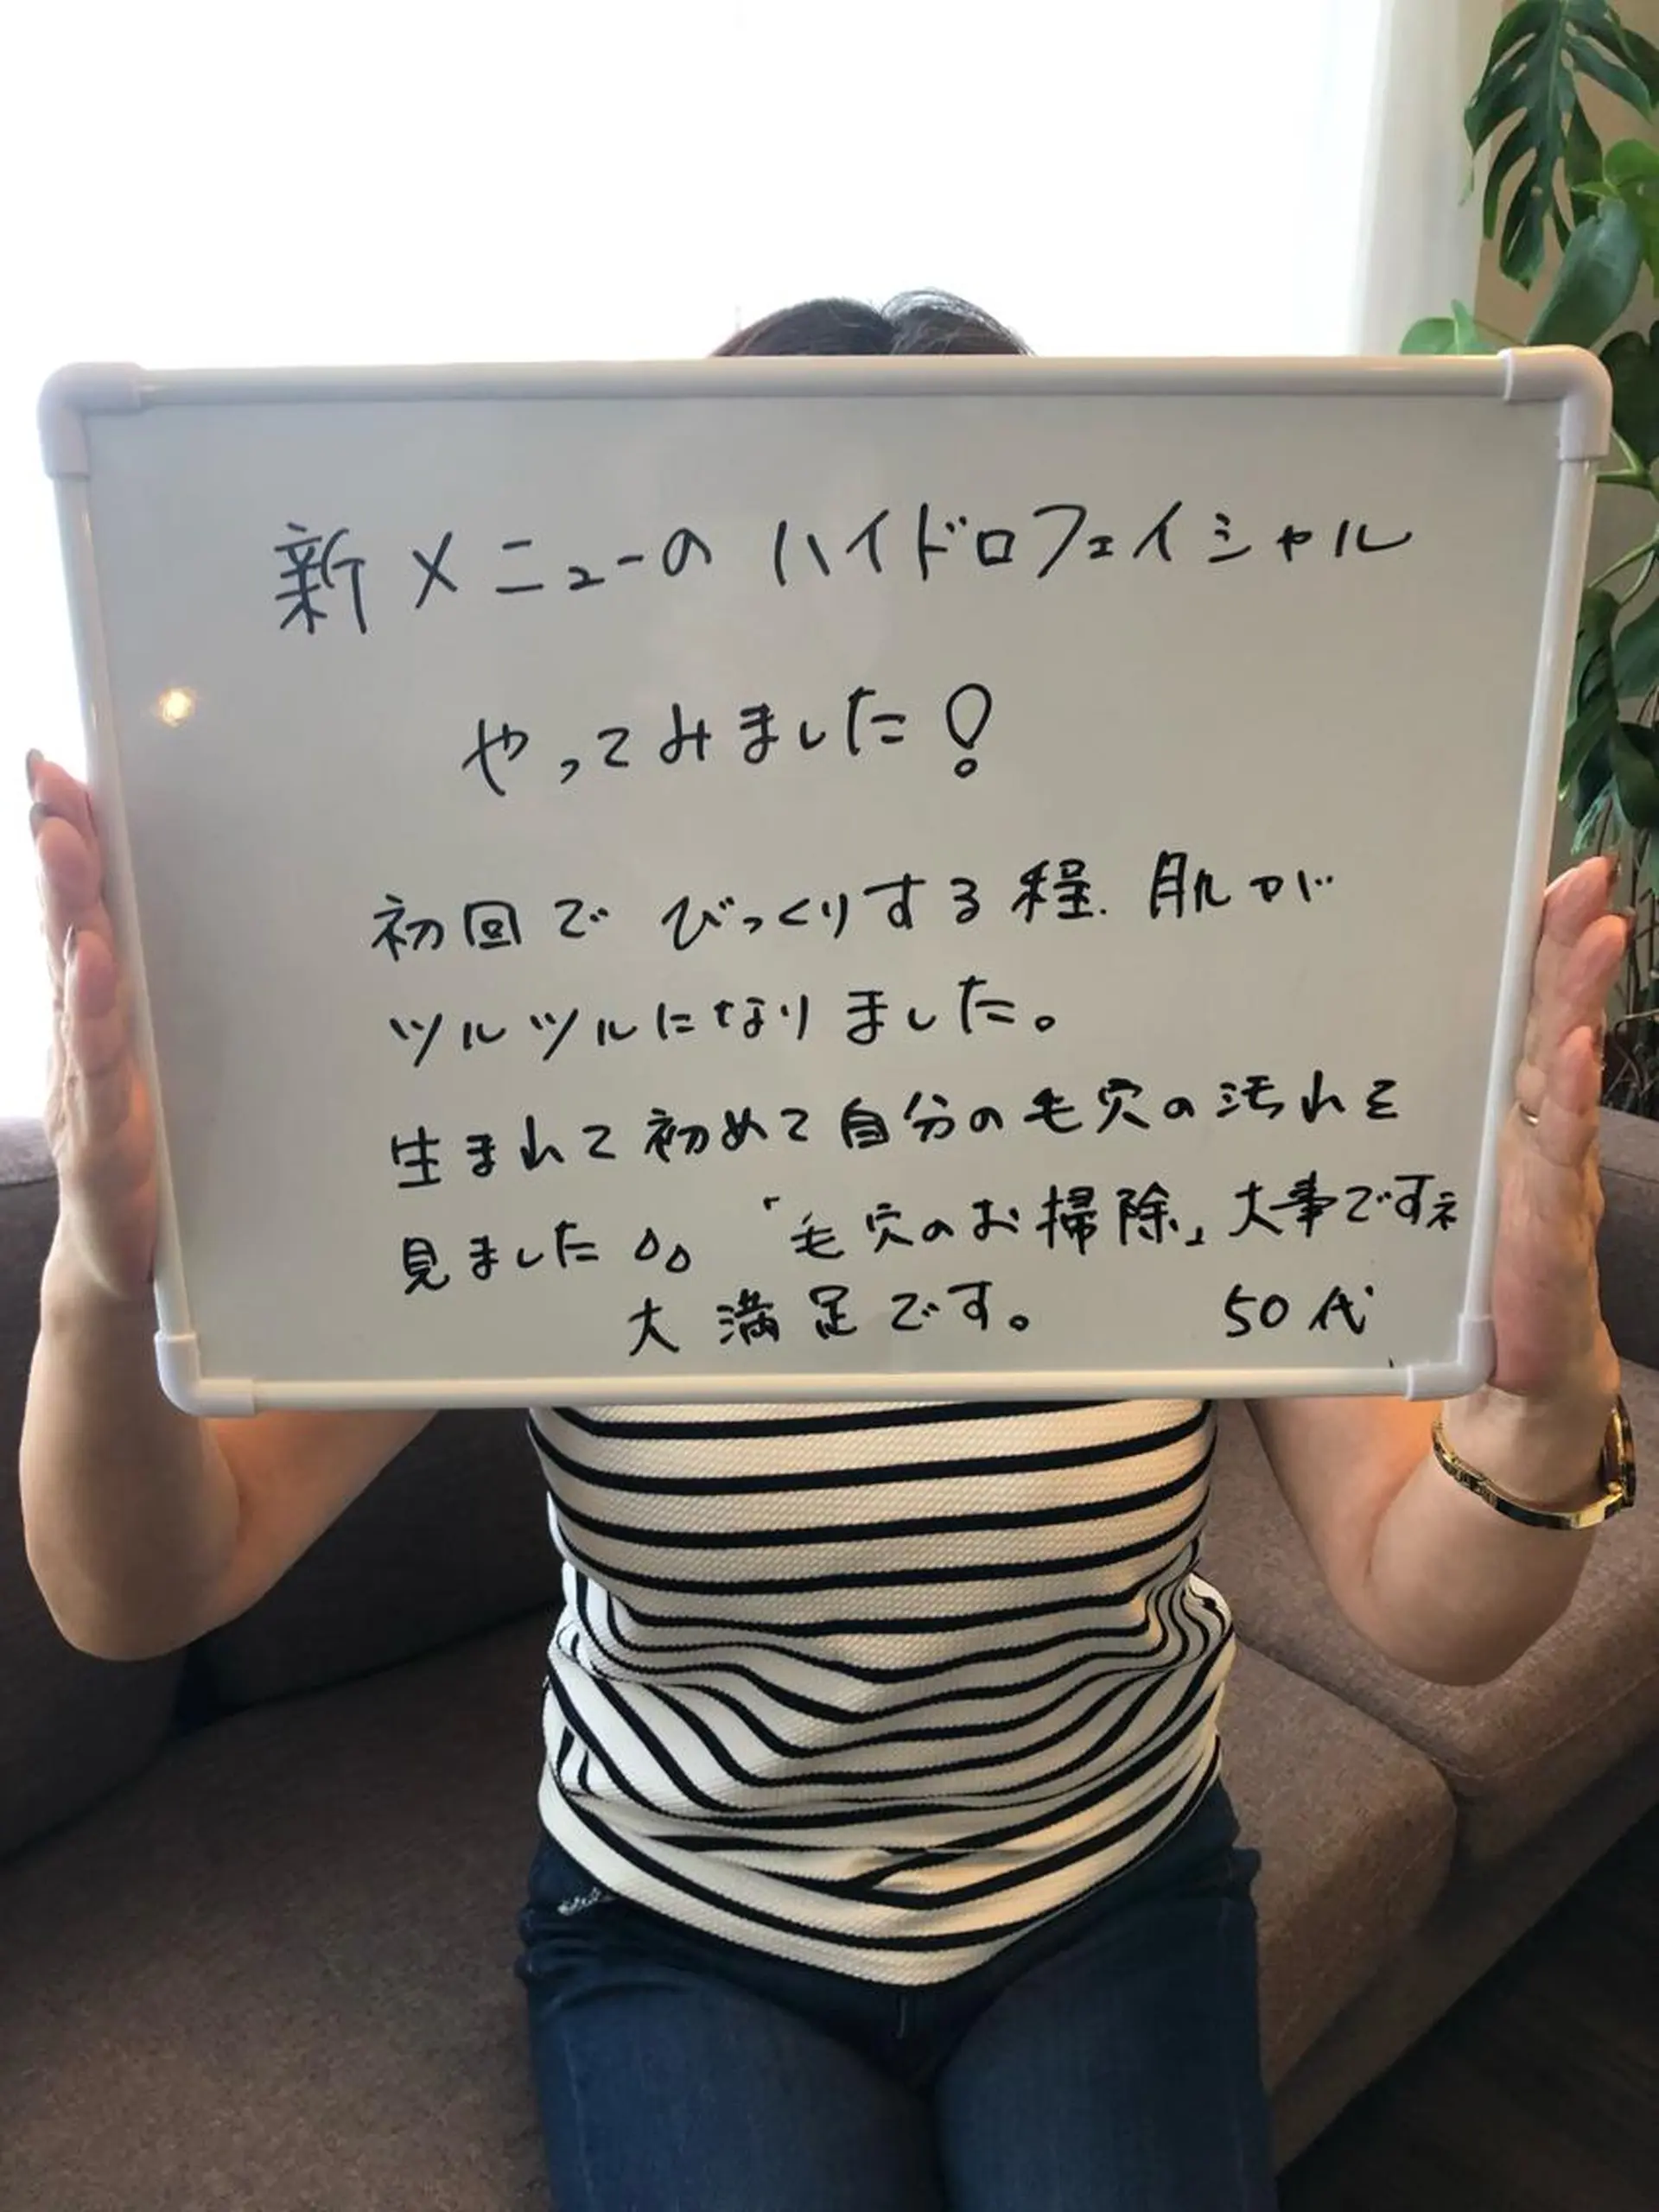 新メニューの ハイドロフェイシャル
やってみました!
初回で びっくりする程、肌が
ツルツルになりました。
生まれて初めて自分の毛穴の汚れを
見ました 「毛穴のお掃除」大事ですネ
大満足です。 50代